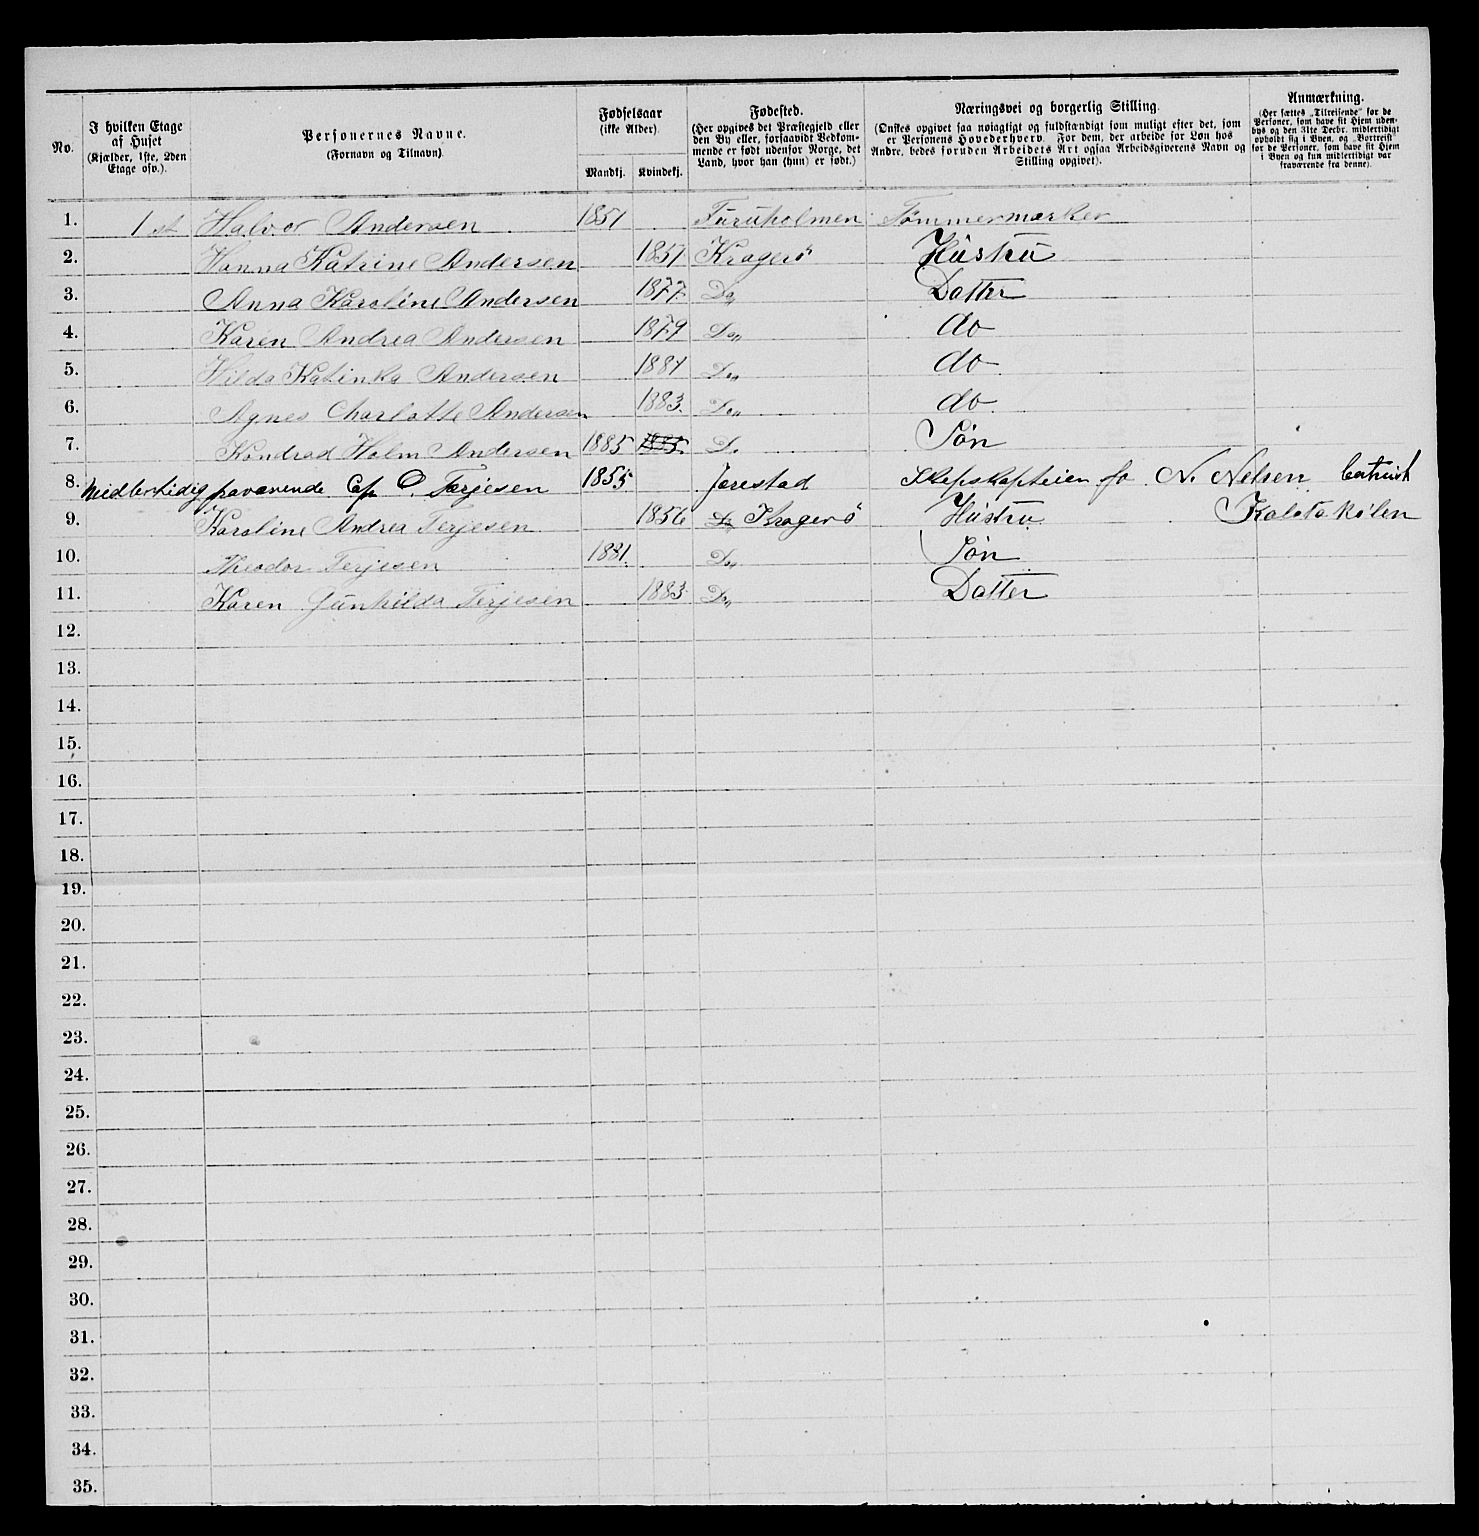 No.
I hvilken Etage af Huset (Kjælder, 1ste, 2den Etage osv.).
Personernes Navne. (Fornavn og Tilnavn).
Fødselsaar (ikke Alder).
Mandkj. Kvindekj.
Fødested. (Her opgives det Præstegjeld eller den By eller, forsaavidt Vedkommende er født udenfor Norge, det Land, hvor han (hun) er født.)
Næringsvei og borgerlig Stilling. (Ønskes opgivet saa nøiagtigt og fuldstændigt som muligt efter det, som er Personens Hovederhverv. For dem, der arbeide for Løn hos Andre, bedes foruden Arbeidets Art ogsaa Arbeidsgiverens Navn og Stilling opgivet).
Anmærkning. (Her sættes „Tilreisende“ for de Personer, som have sit Hjem udenbys og den 31te Decbr. midlertidigt opholdt sig i Byen, og „Bortreist“ for de Personer, som have sit Hjem i Byen og kun midlertidigt var fraværende fra denne).
1. 1 st Halvor Andersen 1851 Furuholmen Tømmermærker
2. Hanna Katrine Andersen 1857 Kragerö Hüstrü
3. Anna Karoline Andersen 1877 Do Datter
4. Karen Andrea Andersen 1879 Do do
5. Hilda Katinka Andersen 1881 Do do
6. Agnes Charlotte Andersen 1883 Do do
7. Kondrad Holm Andersen 1885 Do Søn
8. Midlertidig fraværende Cap O. Tarjesen 1855 Jærestad Skepskapteien fo N. Nelsen
9. Karoline Andrea Terjesen 1856 Do Kragerö Hüstrü
10. Theodor Terjesen 1881. Do Søn
11. Karen Gunhilda Terjesen 1883 Do Datter
12.
13.
14.
15.
16.
17.
18.
19.
20.
21.
22.
23.
24.
25.
26.
27.
28.
29.
30.
31.
32.
33.
34.
35.